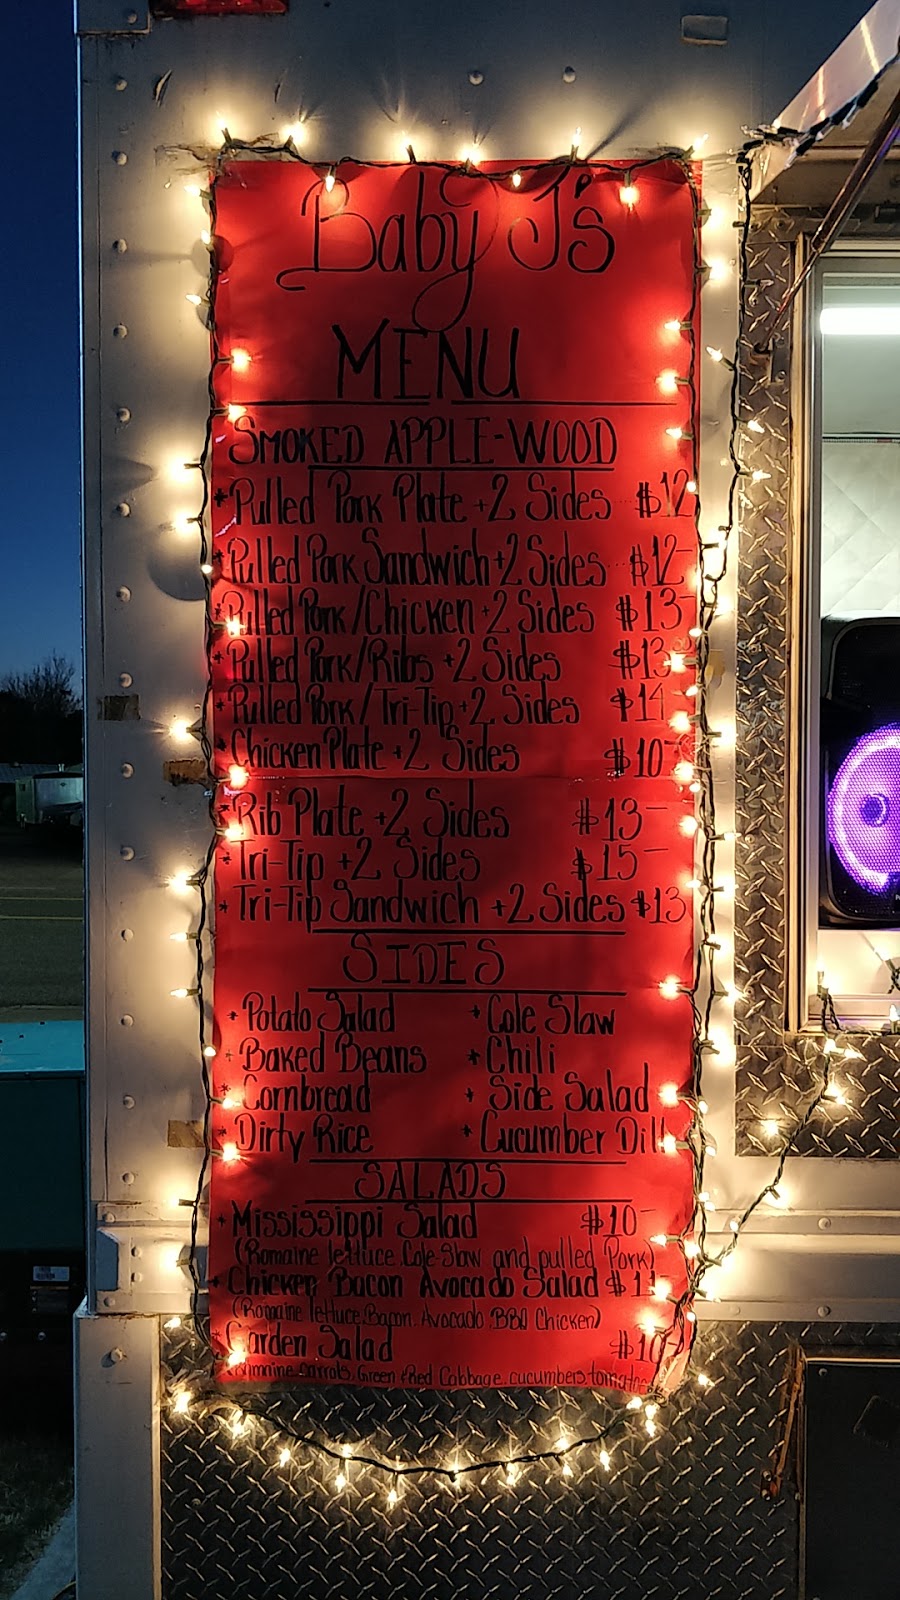 Baby J's
MENU
SMOKED APPLE-WOOD
* Pulled Pork Plate +2 Sides ... $12
* Pulled Pork Sandwich +2 Sides ... $12-
* Pulled Pork/Chicken +2 Sides $13-
* Pulled Pork/Ribs +2 Sides $13-
* Pulled Pork/Tri-Tip +2 Sides $14
* Chicken Plate +2 Sides $10-
* Rib Plate +2 Sides $13-
* Tri-Tip +2 Sides $15-
* Tri-Tip Sandwich +2 Sides $13
SIDES
* Potato Salad * Cole Slaw
* Baked Beans * Chili
* Cornbread * Side Salad
* Dirty Rice * Cucumber Dill
SALADS
* Mississippi Salad $10-
(Romaine lettuce, Cole-Slaw and pulled Pork)
* Chicken Bacon Avocado Salad $11
(Romaine lettuce, Bacon, Avocado BBQ Chicken)
* Garden Salad $10-
Carrots, Green & Red Cabbage, cucumbers,